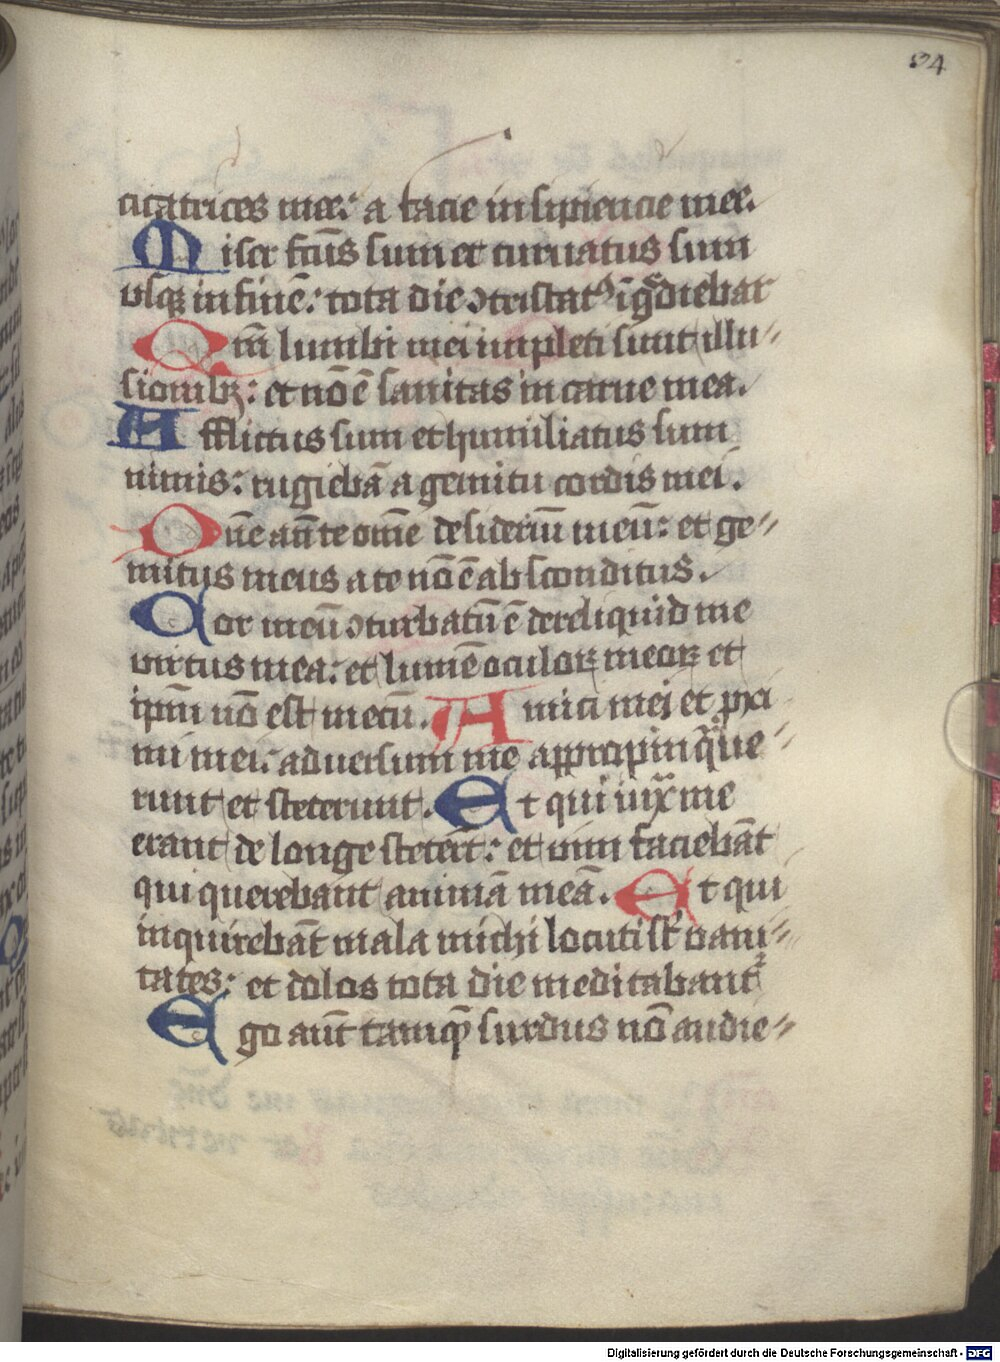 84
cicatrices mee: a facie insipiencie mee.
Miser fc̄us sum et curuatus sum
vsqꝫ in finē: tota die ↄtristatꝰ īgͦdiebar
Qm̄ lumbi mei impleti sunt illu//
sionibꝫ: et nō ē sanitas in carne mea.
Afflictus sum et humiliatus sum
nimis: rugiebā a gemitu cordis mei.
Dn̄e an̄ te om̄e desideriū meū: et ge//
mitus meus a te nō ē absconditus.
Cor meū ↄturbatū ē dereliquid me
virtus mea: et lumē oculoꝝ meoꝝ et
ipm̄ nō est mecū. Amici mei et pxi
mi mei: aduersum me appropinq̈ue//
runt et steterunt. Et qui iuxͣ me
erant de longe steter̄t: et vim faciebāt
qui querebant animā meā. Et qui
inquirebāt mala michi locuti st̄ vani//
tates: et dolos tota die meditabant᷑
Ego aūt tamqꝫ surdus nō audie//
Digitalisierung gefördert durch die Deutsche Forschungsgemeinschaft - DFG